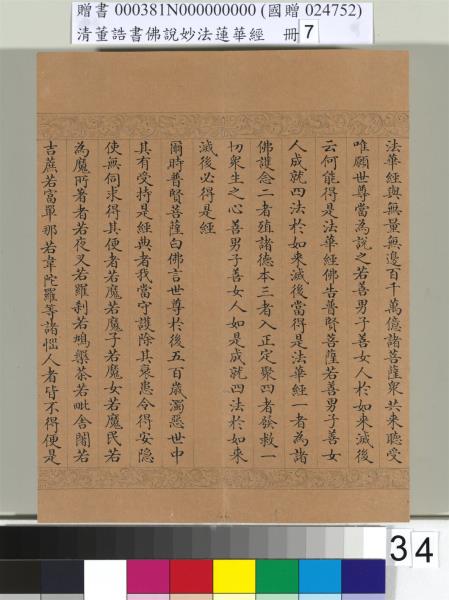 贈書 000381N000000000 (國贈 024752)
清董誥書佛說妙法蓮華經 冊 7
法華經與無量無邊百千萬億諸菩薩眾共來聽受
唯願世尊當為說之若善男子善女人於如來滅後
云何能得是法華經佛告普賢菩薩若善男子善女
人成就四法於如來滅後當得是法華經一者為諸
佛護念二者殖諸德本三者入正定聚四者發救一
切眾生之心善男子善女人如是成就四法於如來
滅後必得是經
爾時普賢菩薩白佛言世尊於後五百歲濁惡世中
其有受持是經典者我當守護除其衰患令得安隱
使無伺求得其便者若魔若魔子若魔女若魔民若
為魔所著者若夜叉若羅剎若鳩槃荼若毗舍闍若
吉蔗若富單那若韋陀羅等諸惱人者皆不得便是
34